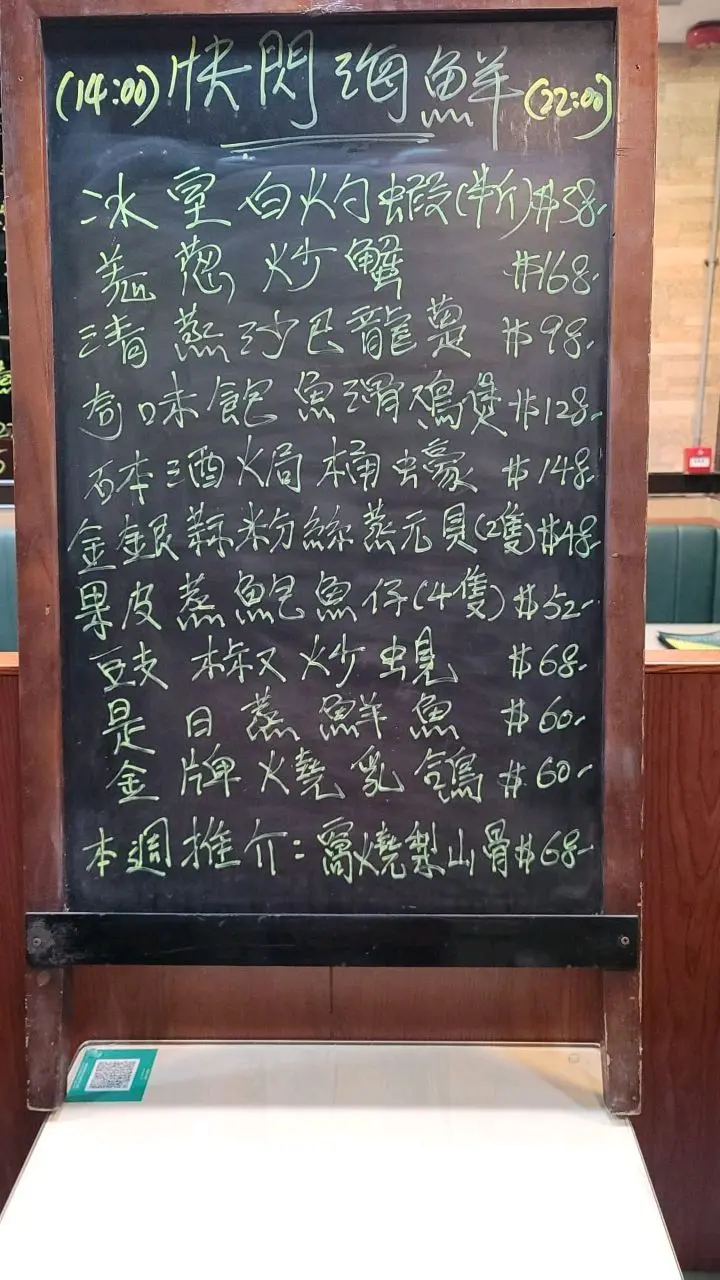 (14:00) 快閃海鮮 (22:00)
冰室白灼蝦(半斤) $38-
羗葱炒蟹 $168-
清蒸沙巴龍躉 $98-
奇味鮑魚滑鸡煲 $128-
砵酒焗桶蠔 $148-
金銀蒜粉絲蒸元貝(2隻) $48-
果皮蒸鮑魚仔(4隻) $52-
豉椒炒蜆 $68-
是日蒸鮮魚 $60-
金牌火燒乳鴿 $60-
本週推介：窩燒梨山骨 $68-